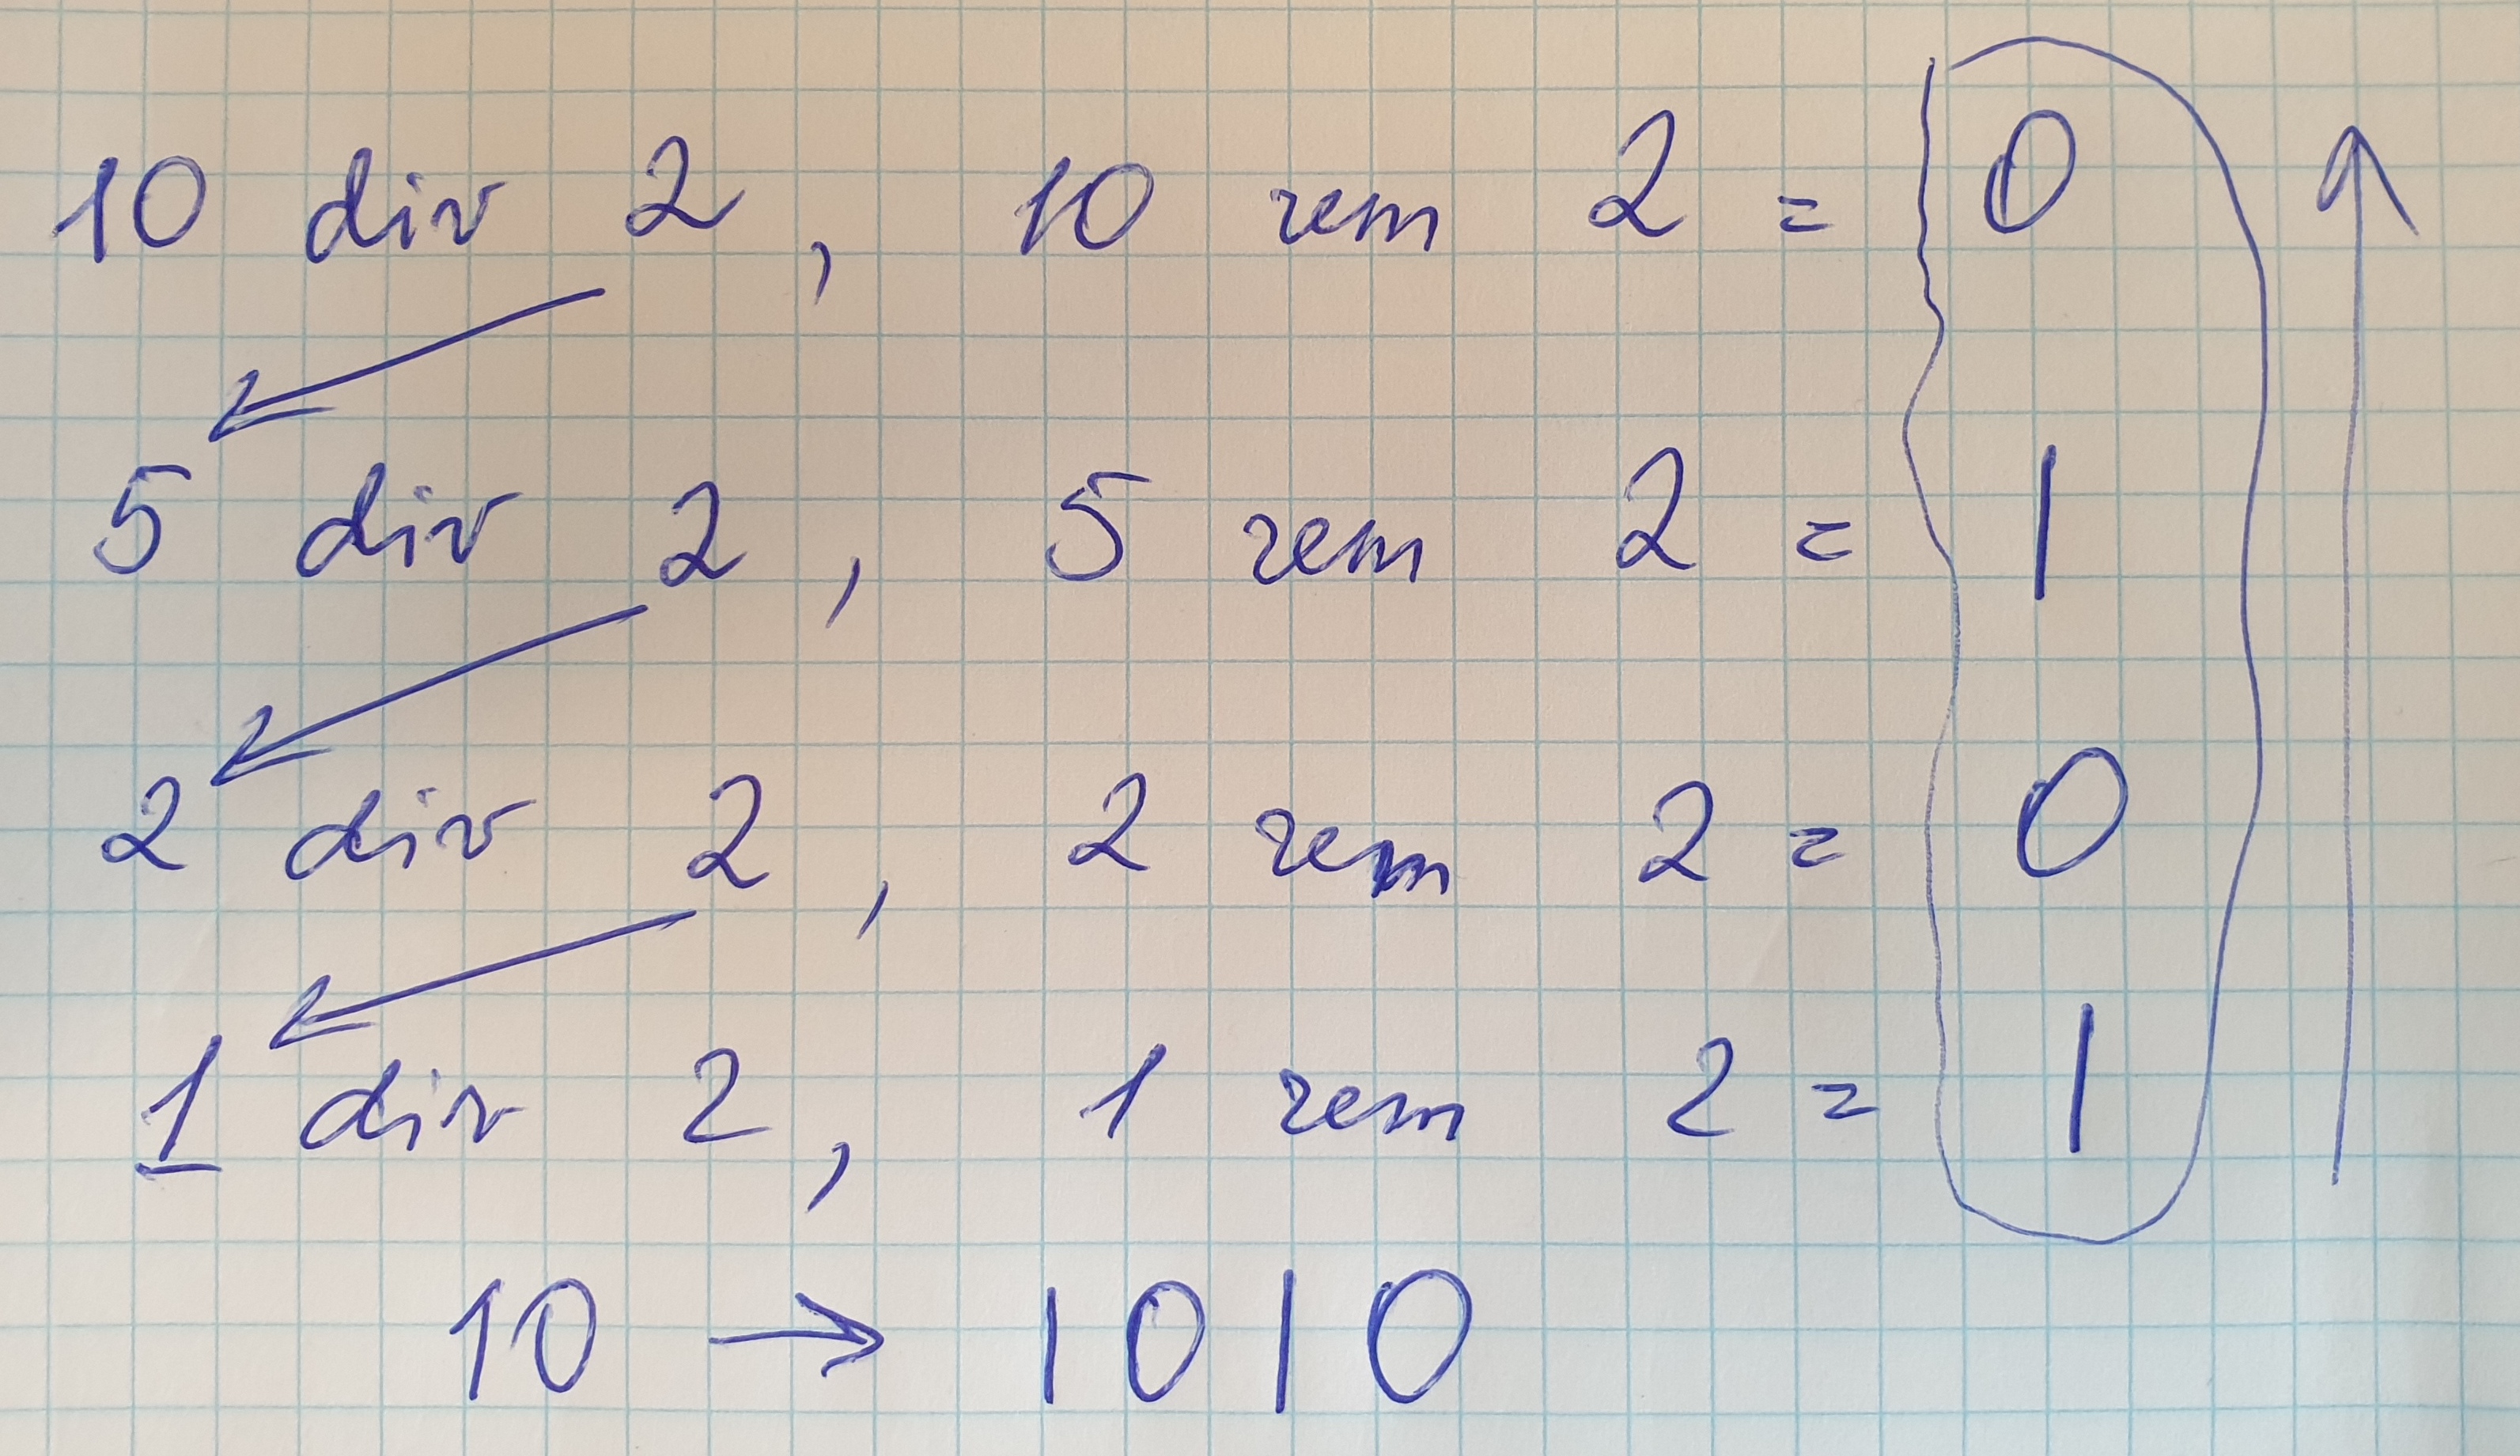 10 div 2, 10 rem 2 = 0
5 div 2, 5 rem 2 = 1
2 div 2, 2 rem 2 = 0
1 div 2, 1 rem 2 = 1
10 → 1010